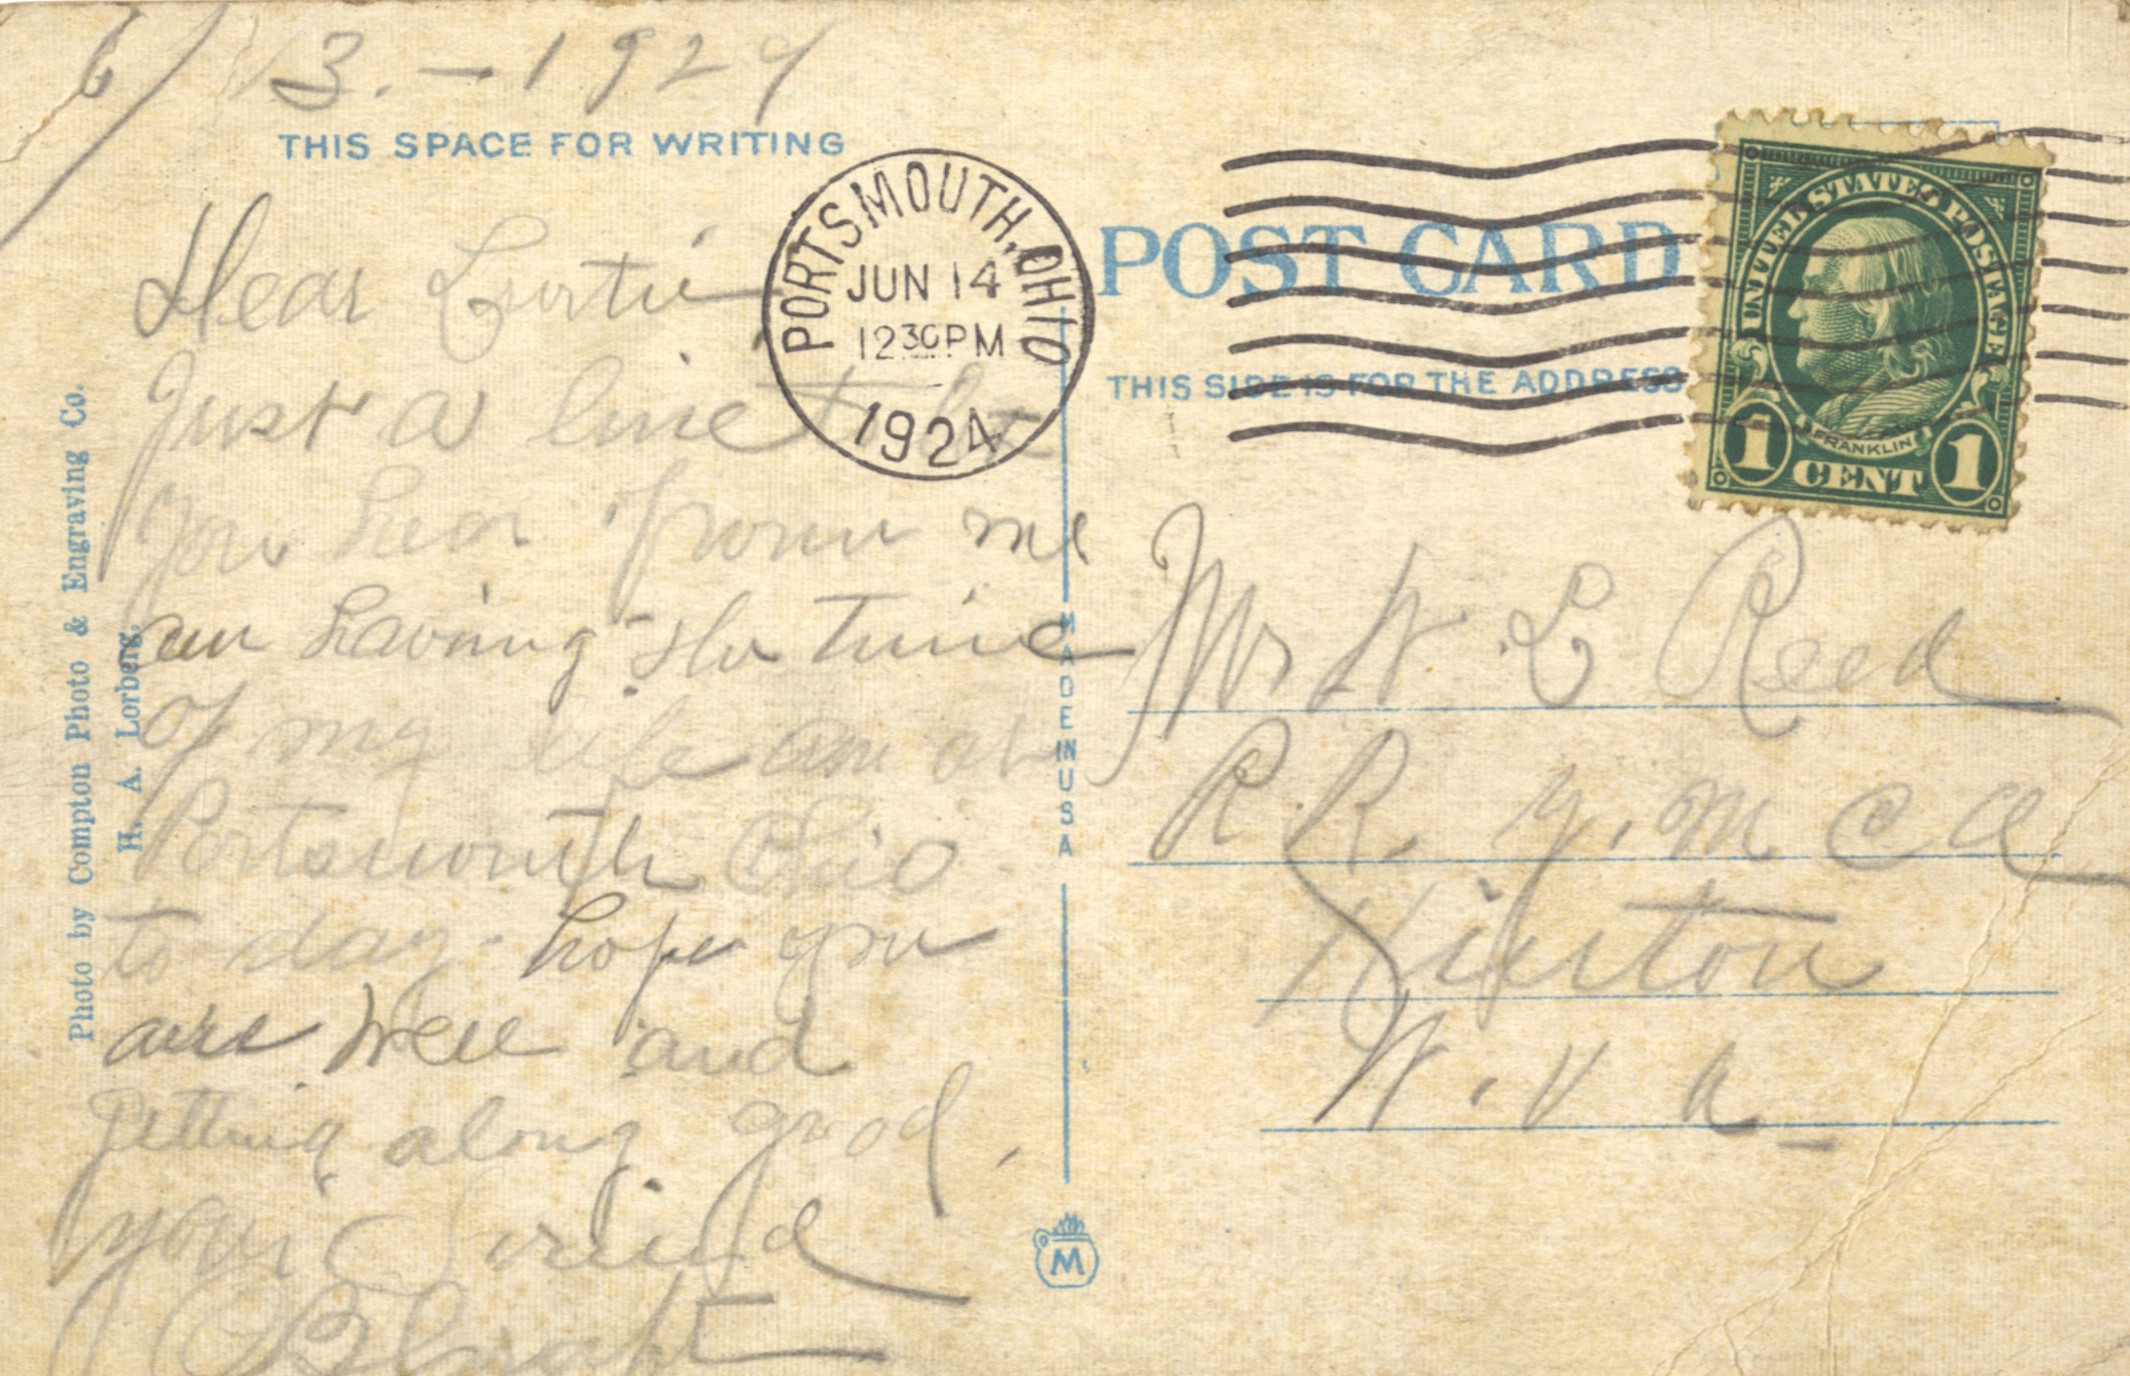 6/13.-1924
THIS SPACE FOR WRITING
Dear Curtis
Just a line to let
you hear from me
am having the time
of my life am at
Portsmouth Ohio
to day. hope you
are well and
getting along good.
your friend
PORTSMOUTH, OHIO
JUN 14
12 30 PM
1924
POST CARD
THIS SIDE IS FOR THE ADDRESS
UNITED STATES POSTAGE
FRANKLIN
1 CENT 1
Mr W. L Reed
R. R. Y. M C A
Hinton
W. Va
Photo by Compton Photo & Engraving Co.
H. A. Lorberg.
MADE IN USA
M